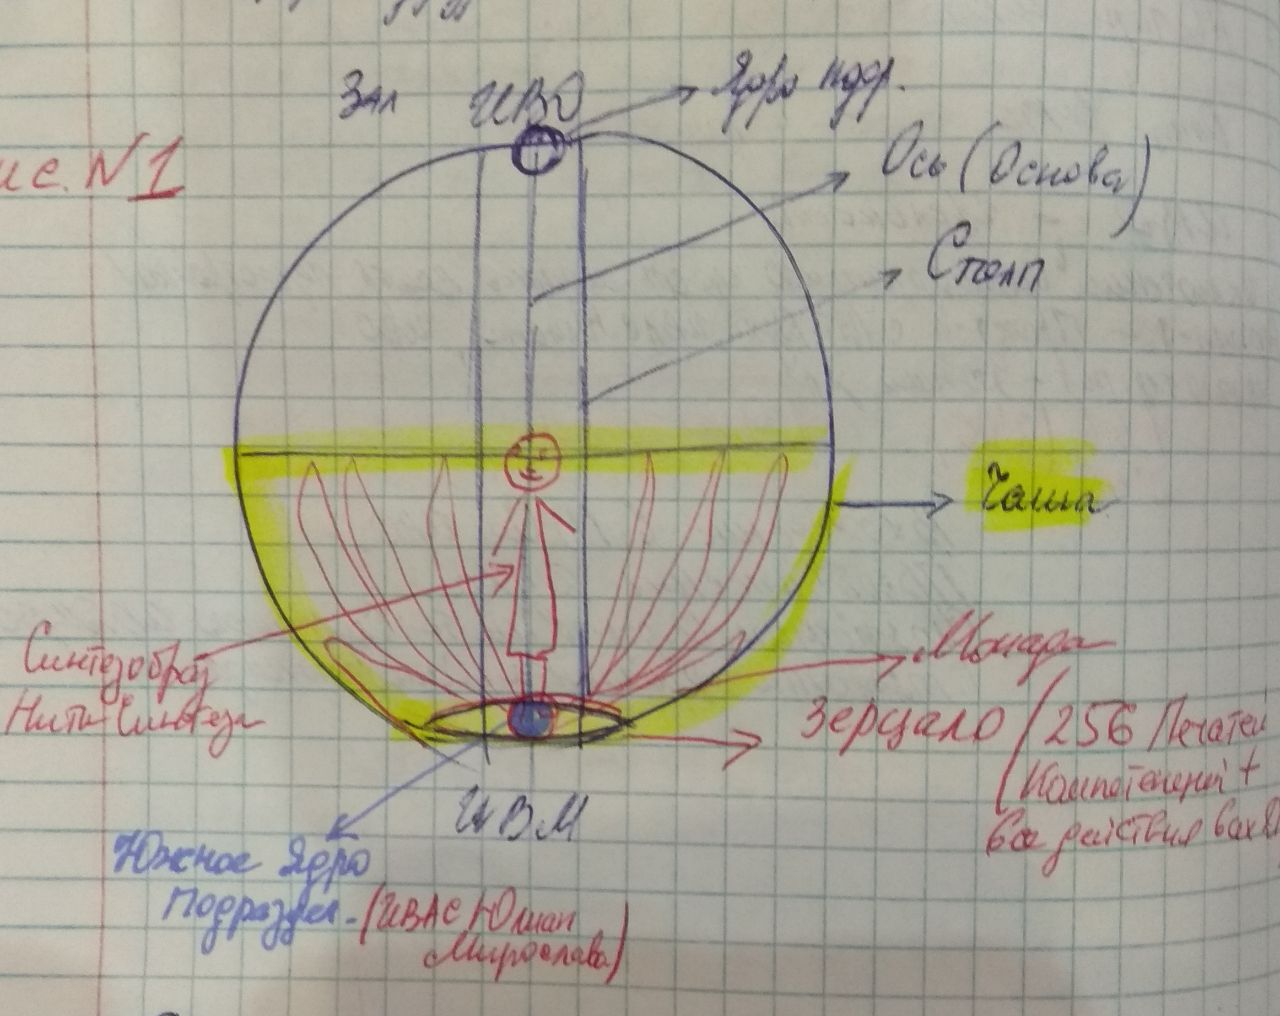 Зал ИВО
Ядро подр.
ис. N1
Ось (Основа)
Столп
Чаша
Синтезобраз
Нити Синтеза
Монада
Зерцало (256 Печатей
Компетенций +
Все действия
ИВМ
Южное Ядро
Подраздел. (ИВАС Юлиан
Мирослава)